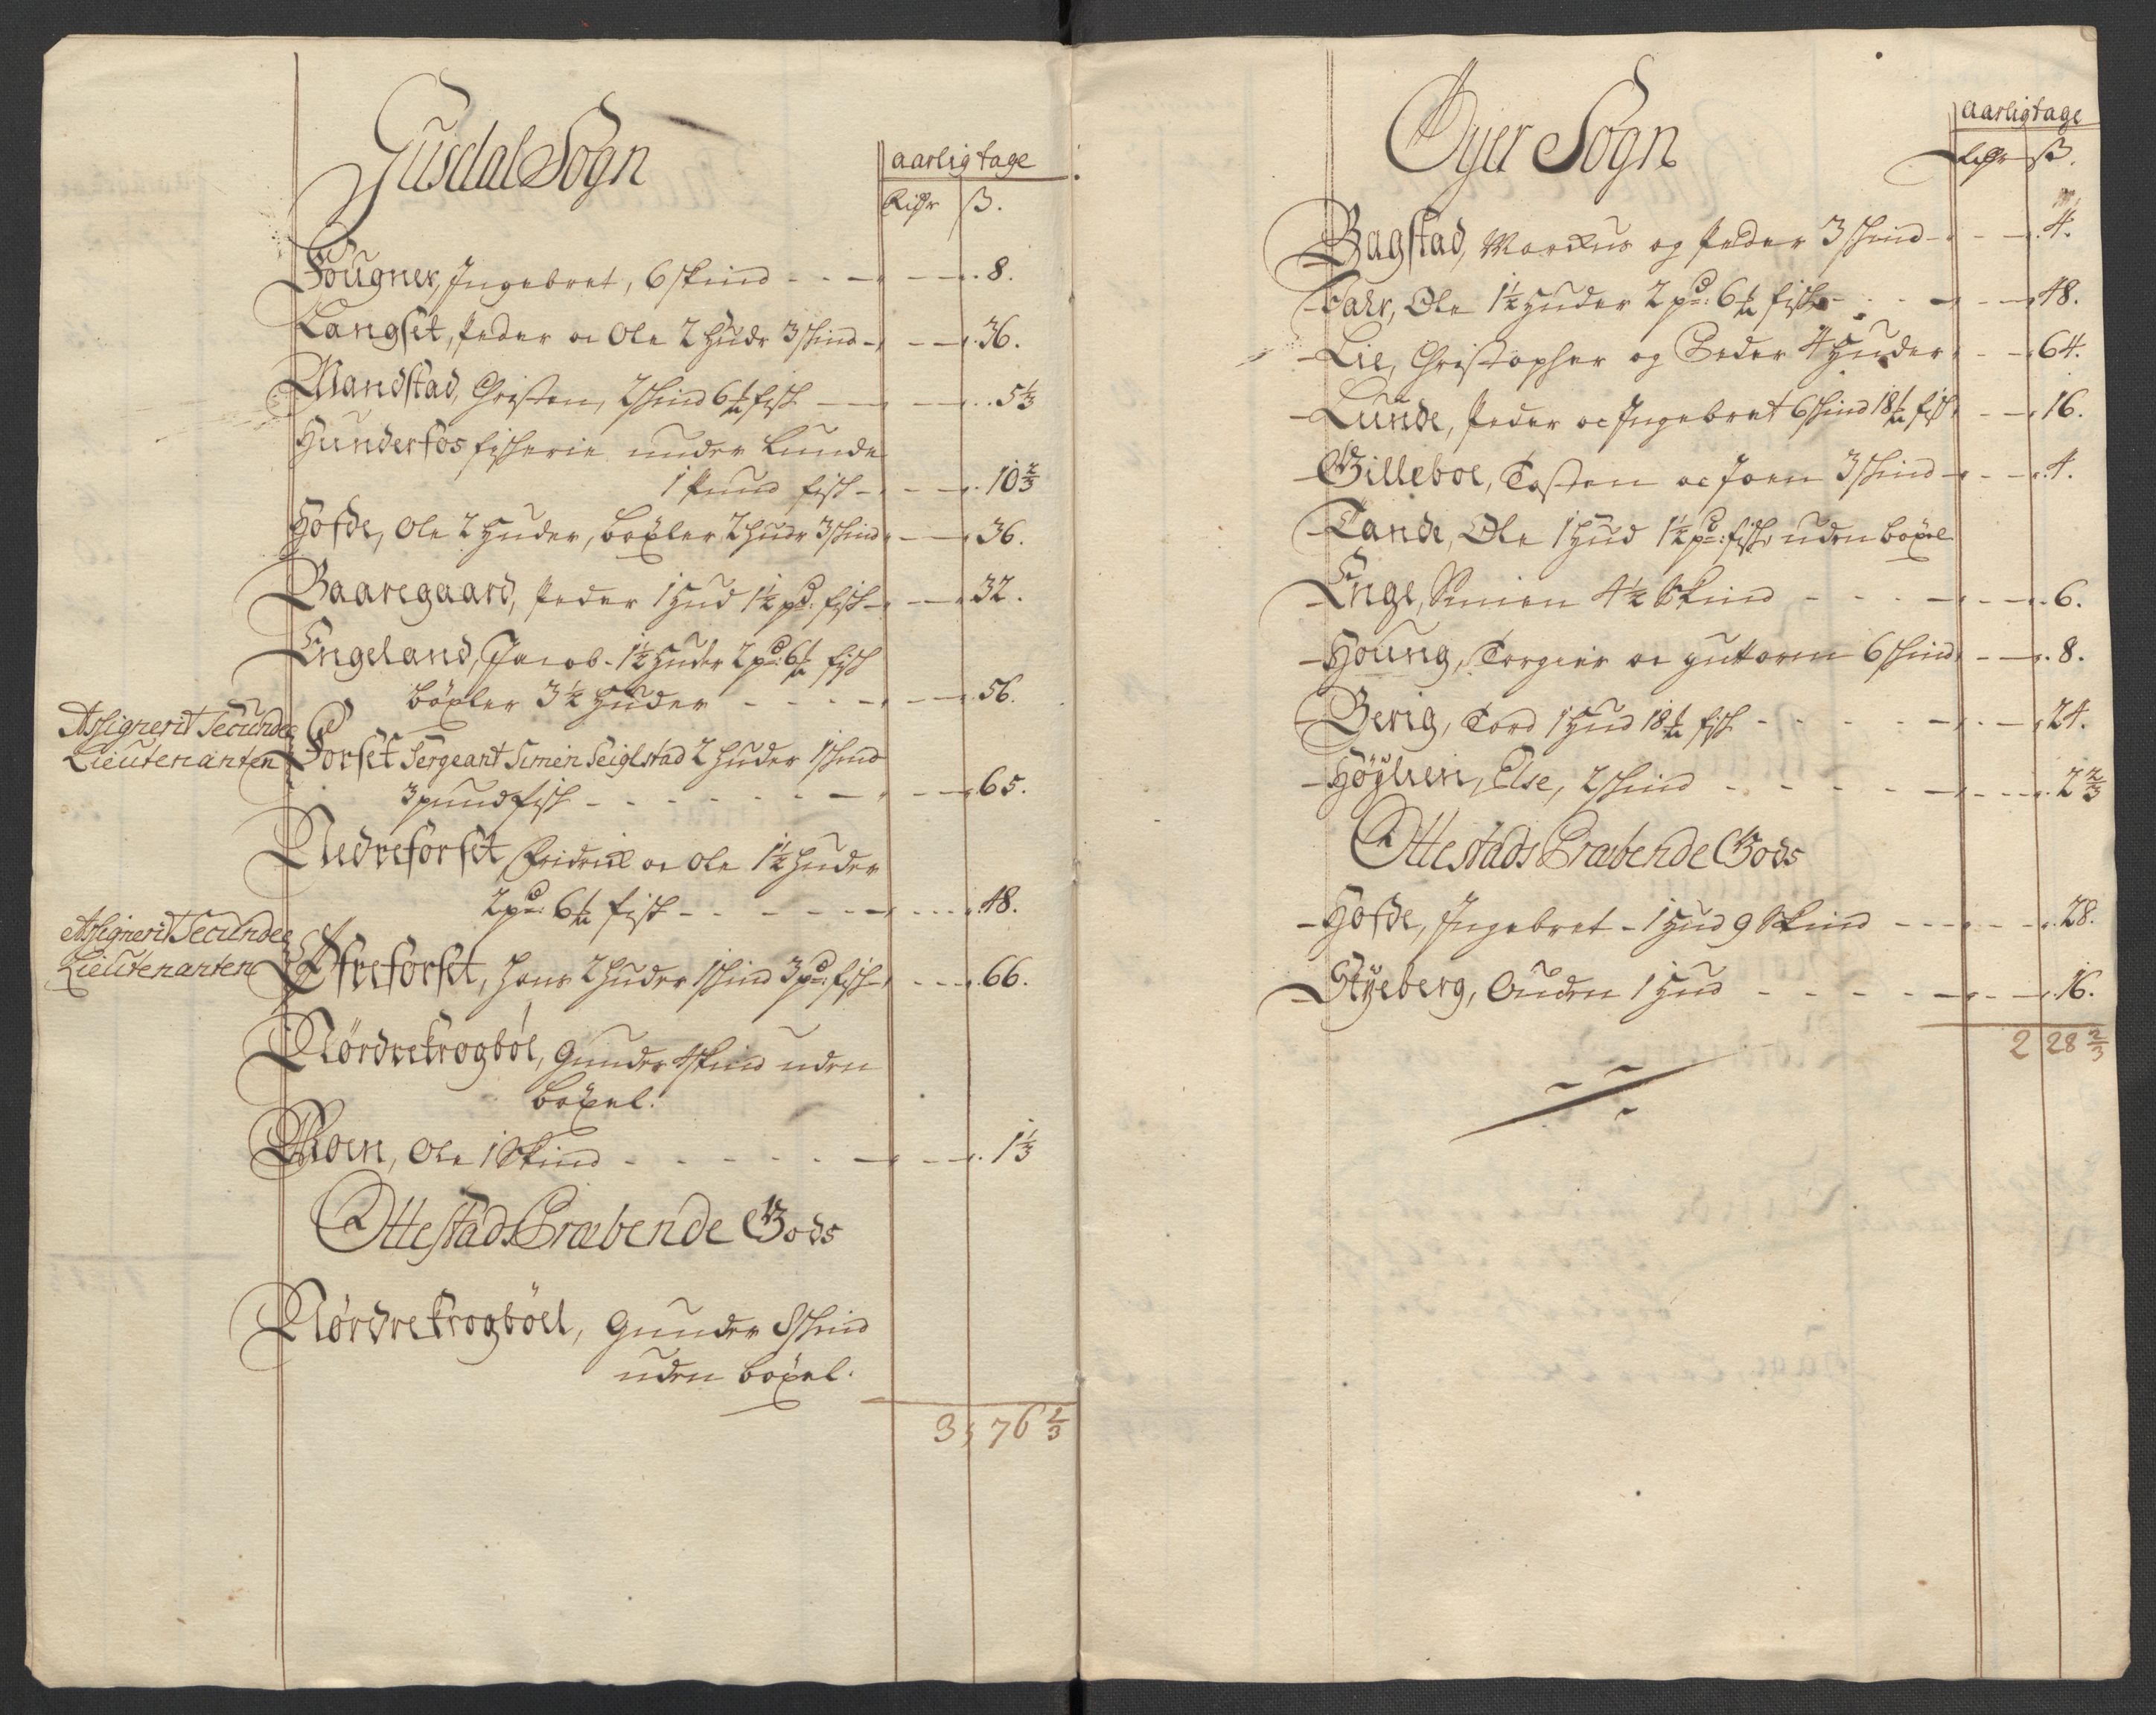 Gusdal Sogn
aarlig tage
Richr ß.
Fougner, Ingebret, 6 skind - - - 8.
Langset, Peder oc Ole 2 Hudr 3 skind - - - 36.
Mandstad, Christen, 2 skind 6 ℔ fisk - - - 5 1/3
Hunderfos fisherie under Lunde
1 Pund fisk - - - 10 2/3
Hofde, Ole 2 Huder, böxler 2 hudr 3 skind - - 36.
Baaregaard, Peder 1 Hud 1½ pd: fisk - - 32.
Engeland, Jacob - 1½ Huder 2 pd: 6 ℔ fisk
böxler 3½ Huder - - - - 56.
Assignerit Secunde
Lieutenanten
Forset Sergeant Simen Seiglstad 2 huder 1 skind
3 pund fisk - - - - - - 65.
Nedreforset Fridrik oc Ole 1½ huder
2 pd: 6 ℔ fisk - - - - - 48.
Assignerit Secunde
Lieutenanten
Øfreforset, Hans 2 huder 1 skind 3 pd: fisk - - 66.
Nordrekrogböl, Gunder 4 skind uden
böxel.
Moen, Ole 1 Skind - - - - - - 1 1/3
Ottestads Præbende Gods
Nordrekrogböel, Gunder 8 skind
uden böxel.
3, 76 2/3
Øyer Sogn
aarlig tage
Richr ß.
Bagstad, Markus og Peder 3 skind - - - 4.
Dahr, Ole 1½ Huder 2 pd: 6 ℔ fisk - - - 48.
Lie, Christopher og Peder 4 Huder - - 64.
Lunde, Peder oc Ingebret 6 skind 18 ℔ fisk - - 16.
Gilleboe, Tosten oc Joen 3 skind - - - 4.
Tande, Ole 1 Hud 1½ pd: fisk, uden böxel
Enge, Simen 4½ Skind - - - - 6.
Houng, Torgier oc Guttorm 6 skind - - 8.
Berig, Tord 1 Hud 18 ℔ fisk - - - - 24.
Höylien, Else, 2 skind - - - - - 2 2/3
Ottestads Præbende Gods
Hofde, Ingebret - 1 Hud 9 Skind - - - - 28.
Styeberg, Ouden 1 Hud - - - - - 16.
2 28 2/3